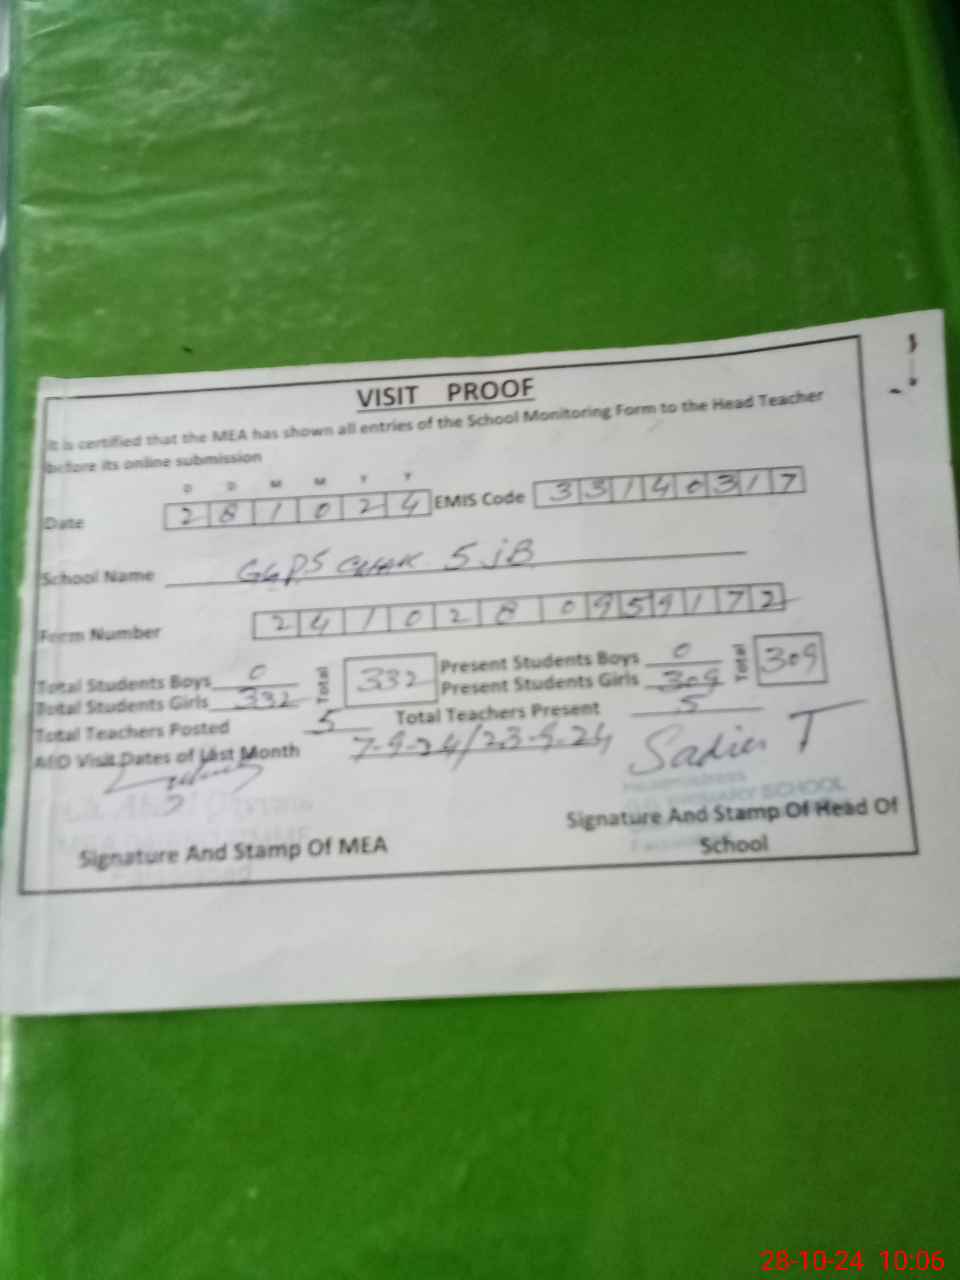 VISIT PROOF
It is certified that the MEA has shown all entries of the School Monitoring Form to the Head Teacher
before its online submission
D D M M Y Y
Date 2 8 1 0 2 4 EMIS Code 3 3 1 4 0 3 1 7
School Name GGPS CHAK 5 JB
Form Number 2 4 1 0 2 8 0 9 5 9 1 7 2
Total Students Boys 0 Total 332 Present Students Boys 0 Total 309
Total Students Girls 332 Present Students Girls 309
Total Teachers Posted 5 Total Teachers Present 5
AEO Visit Dates of Last Month 7-9-24/23-9-24
Sadia T
Headmistress
PRIMARY SCHOOL
Signature And Stamp Of MEA Signature And Stamp Of Head Of
School
28-10-24 10:06